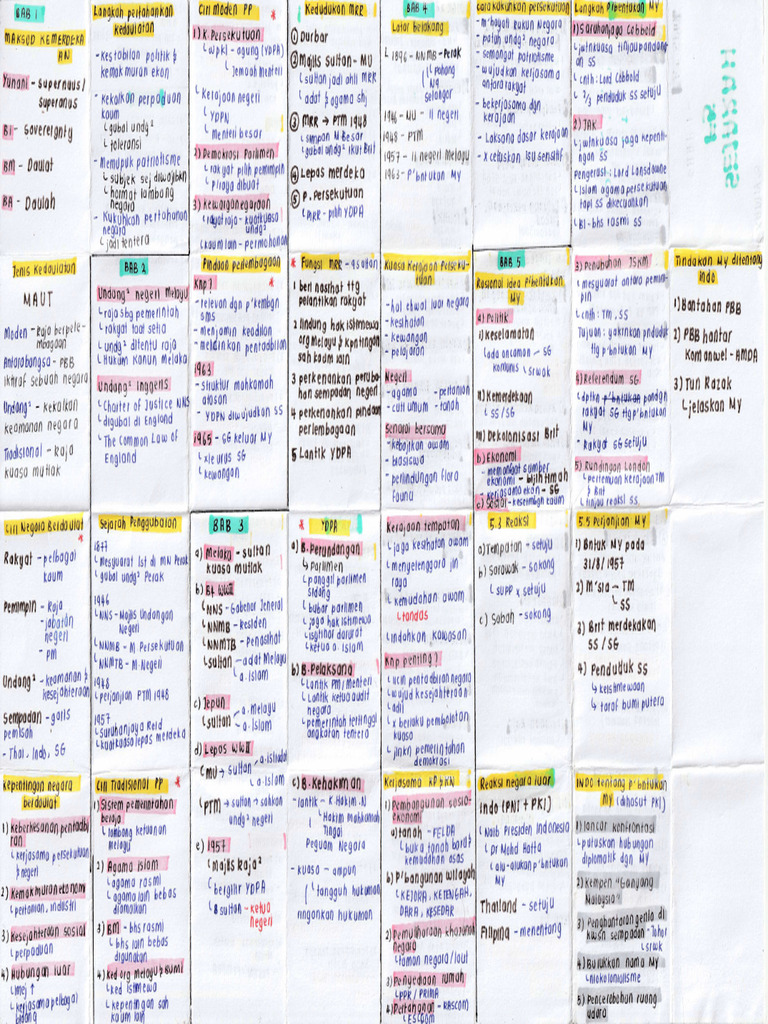 BAB 1
MAKSUD KEMERDEKA
AN
Yunani - supernaus/
superanas
BI - Sovereignty
BM - Daulat
BA - Daulah
Jenis Kedaulatan
MAUT
Moden - Raja berpele-
mbagaan
Antarabangsa - PBB
iktiraf sebuah negara
Undang² - Kekalkan
keamanan negara
Tradisional - Raja
kuasa mutlak
Ciri Negara Berdaulat
Rakyat - pelbagai
kaum
Pemimpin - Raja
- jabatan
negeri
- pm
Undang² - keamanan &
kesejahteraan
Sempadan - garis
pemisah
- Thai, Indo, SG
Kepentingan negara
berdaulat
1) Keberkesanan pentadbi
ran
↳ kerjasama persekutuan
& negeri
2) Kemakmuran ekonomi
↳ pertanian, industri
3) Kesejahteraan sosial
↳ perpaduan
4) Hubungan luar
↳ imej ↑
↳ kerjasama pelbagai
bidang
Langkah pertahankan
kedaulatan
- Kestabilan politik &
kemakmuran ekon
- Kekalkan perpaduan
kaum
↳ gubal undg²
↳ toleransi
- Memupuk patriotisme
↳ subjek sej diwajibkan
↳ hormat lambang
negara
- Kukuhkan pertahanan
negara
↳ jadi tentera
BAB 2
Undang² negeri Melayu
↳ raja sbg pemerintah
↳ rakyat taat setia
↳ undg² ditentu raja
↳ Hukum Kanun Melaka
Undang² Inggeris
↳ Charter of Justice NNS
↳ digubal di England
↳ The Common Law of
England
Sejarah Penggubalan
1877
↳ Mesyuarat 1st di MN Perak
↳ gubal undg² Perak
1946
↳ NNS - Majlis Undangan
Negeri
↳ NNMB - M. Persekutuan
↳ NNMTB - M. Negeri
1948
↳ perjanjian PTM 1948
1957
↳ Suruhanjaya Reid
↳ kuatkuasa lepas merdeka
Ciri Tradisional PP
1) Sistem pemerintahan
beraja
↳ lambang ketuanan
melayu
2) Agama Islam
↳ agama rasmi
↳ agama lain bebas
diamalkan
3) BM - bhs rasmi
↳ bhs lain bebas
digunakan
4) Ked org melayu & bumi
↳ ked istimewa
↳ kepentingan sah
kaum lain
Ciri Moden PP
1) K. Persekutuan
↳ WPKL - agung (YDPA)
↳ Jemaah Menteri
↳ Kerajaan negeri
↳ YDPN
↳ menteri besar
2) Demokrasi Parlimen
↳ rakyat pilih pemimpin
↳ p'raya dibuat
3) Kewarganegaraan
↳ rakyat raja - kuatkuasa
undg²
↳ kaum lain - permohonan
Pindaan perlembagaan
Knp?
↳ relevan dgn p'kembgn
sms
↳ menjamin keadilan
↳ melicinkan pentadbiran
1963
↳ struktur mahkamah
atasan
↳ YDPN diwujudkan SS
1965 - SG keluar MY
↳ xle urus SG
↳ kewangan
BAB 3
a) Melaka - sultan
kuasa mutlak
b) B4 WWII
↳ NNS - Gabenor Jeneral
↳ NNMB - Residen
↳ NNMTB - Penasihat
↳ sultan - adat Melayu
a. Islam
c) Jepun
↳ sultan - a.melayu
a. Islam
d) Lepas WWII
↳ MU → sultan - a. istiadat
a. Islam
↳ PTM → sultan → sahkan
undg² negeri
e) 1957
↳ majlis Raja²
↳ bergilir YDPA
↳ 8 sultan - ketua
negeri
Kedudukan MRR
1 Durbar
2 Majlis Sultan - MU
↳ sultan jadi ahli MRR
↳ adat & agama shj
3 MRR → PTM 1948
↳ simpan M. Besar
↳ gubal undg² ikut Brit
4 Lepas merdeka
5 P. Persekutuan
↳ MRR - pilih YDPA
Fungsi MRR - 9 sultan
1 beri nasihat ttg
pelantikan rakyat
2 lindung hak istimewa
org melayu & kpntingan
sah kaum lain
3 perkenankan peruba-
han sempadan negeri
4 perkenankan pindaan
perlembagaan
5 Lantik YDPA
YDPA
a) B. Perundangan
↳ Parlimen
↳ panggil parlimen
sidang
↳ bubar parlimen
↳ jaga hak istimewa
↳ isytihar darurat
↳ ketua a. Islam
b) B. Pelaksana
↳ Lantik PM/menteri
↳ Lantik ketua audit
negara
↳ pemerintah tertinggi
angkatan tentera
c) B. Kehakiman
- lantik - K. Hakim. N
↳ Hakim Mahkamah
Tinggi
Peguam Negara
- kuasa - ampun
↳ tangguh hukuman
ringankan hukuman
BAB 4
Latar belakang
↳ 1896 - NNMB - Perak
↳ Pahang
↳ NG
Selangor
1946 - MU - 11 negeri
1948 - PTM
1957 - 11 negeri Melayu
1963 - P'btukan MY
Kuasa Kerajaan Perseku-
tuan
- hal ehwal luar negara
- kesihatan
- kewangan
- pelajaran
Negeri
- agama - pertanian
- cuti umum - tanah
Senarai bersama
- kebajikan awam
- biasiswa
- perlindungan flora
fauna
Kerajaan tempatan
↳ jaga kesihatan awam
↳ menyelenggara jln
raya
↳ kemudahan awam
↳ tandas
↳ indahkan kawasan
Knp penting?
↳ licin pentadbiran negara
↳ wujud kesejahteraan
↳ adil
↳ x berlaku pembolotan
kuasa
↳ jnkn pemerintahan
demokrasi
Kerjasama KP & KN
1) Pembangunan sosio-
ekonomi
a) tanah - FELDA
↳ buka tanah baru &
kemudahan asas
b) P'bangunan wilayah
↳ KEJORA, KETENGAH,
DARA, KESEDAR
2) Pemuliharaan khazanah
negara
↳ taman negara/laut
3) Penyediaan rumah
↳ PPR / PRIMA
4) Pertahanan - RASCOM
↳ ESSCOM
Cara kukuhkan persekutuan
- m'hayati rukun Negara
- patuh undg² negara
- semangat patriotisme
- wujudkan kerjasama
antara rakyat
- bekerjasama dgn
kerajaan
- Laksana dasar kerajaan
- x cetuskan isu sensitif
BAB 5
Rasional idea p'bentukan
MY
a) Politik
i) Keselamatan
↳ ada ancaman - SG
komunis ↳ srwak
ii) Kemerdekaan
↳ SS / SG
iii) Dekolonisasi Brit
b) Ekonomi
- memangat sumber
ekonomi - bijih timah
- kerjasama ekon - SG
c) Sosial - keseimbgn kaum
5.3 Reaksi
a) Tempatan - setuju
b) Sarawak - sokong
↳ supp x setuju
c) Sabah - sokong
Reaksi negara luar
Indo (PNI + PKI)
↳ Naib Presiden Indonesia
↳ Dr Moha Hatta
↳ alu-alukan p'btukan
MY
Thailand - setuju
Filipina - menentang
Langkah P'bentukan MY
1) Suruhanjaya Cobbold
↳ jwtnkuasa tinjau pandang
an SS
↳ cnth : Lord Cobbold
↳ 2/3 penduduk SS setuju
2) JAK
↳ jwtnkuasa jaga kepenti-
ngan SS
Pengerusi : Lord Lansdowne
↳ Islam agama persekutuan
tapi SS dikecualikan
↳ BI - bhs rasmi SS
3) Penubuhan JSKM
↳ mesyuarat antara pemim-
pin
↳ cnth : TM, SS
Tujuan : yakinkan pnduduk
ttg p'btukan MY
4) Referendum SG
↳ dptkn pandgn
rakyat SG ttg p'btukan
MY
↳ Rakyat SG setuju
5) Rundingan London
↳ pertemuan kerajaan TM
& Brit
↳ tinjau reaksi SS
5.5 Perjanjian MY
1) Bntuk MY pada
31/8/1957
2) M'sia - TM
↳ SS
3) Brit merdekakan
SS / SG
4) Penduduk SS
↳ keistimewaan
↳ taraf bumi putera
INDO tentang p'btukan
MY (dihasut PKI)
1) lancar konfrontasi
↳ putuskan hubungan
diplomatik dgn MY
2) Kempen "Ganyang
Malaysia"
3) Penghantaran gerila di
kwsn sempadan - Johor
↳ srwk
4) Burukkan nama MY
↳ neokolonialisme
5) Pencerobohan ruang
udara
SEJARAH
F5
Tindakan MY ditentang
Indo
1) Bantahan PBB
2) PBB hantar
Komanwel - AMDA
3) Tun Razak
↳ jelaskan MY